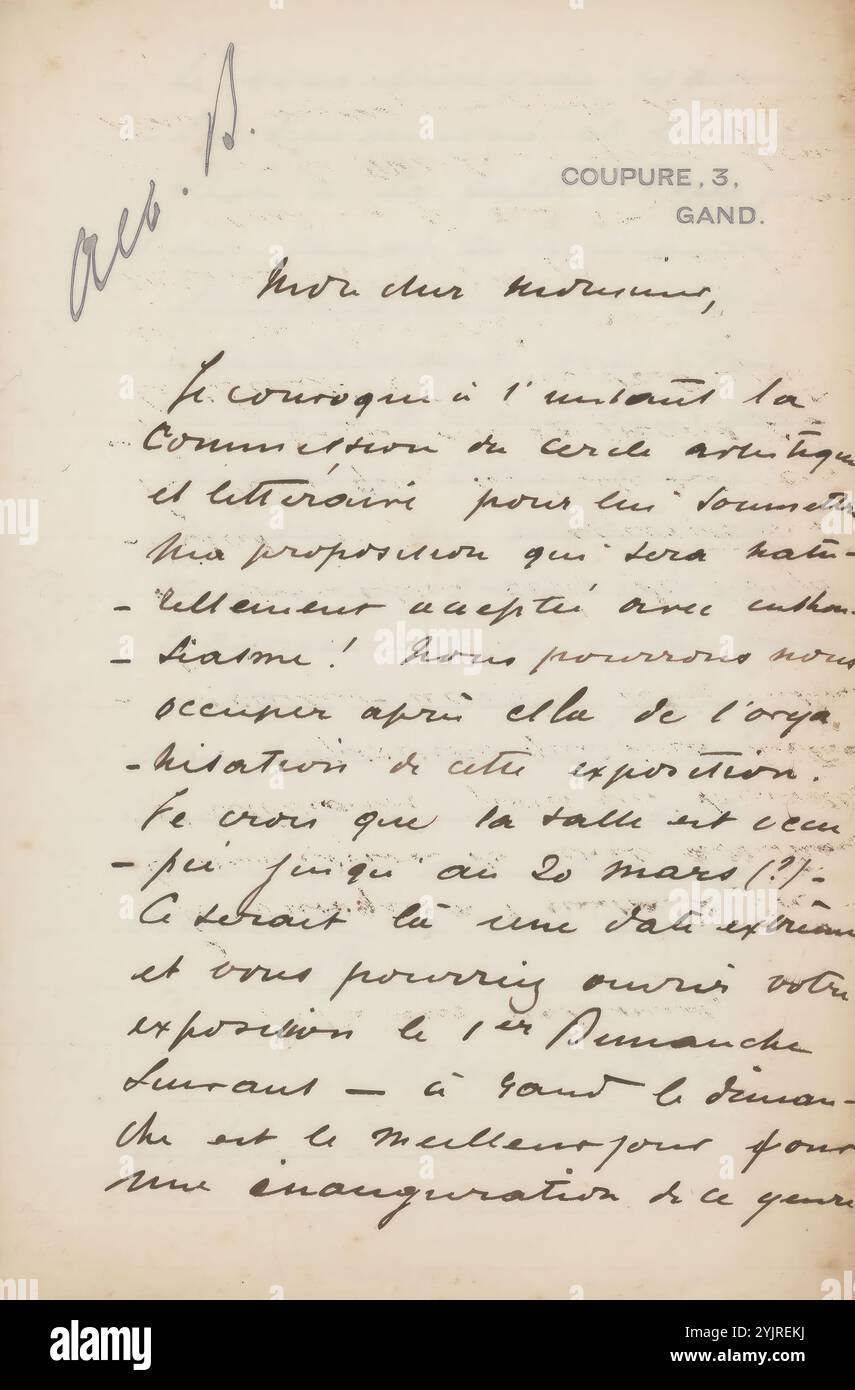 Alb. B.
COUPURE, 3,
GAND.
Mon cher monsieur,
Je convoque à l'instant la
Commission du cercle artistique
et littéraire pour lui soumettre
ma proposition qui sera natu-
- rellement acceptée avec enthou-
- siasme ! Nous pourrons nous
occuper après cela de l'orga
- nisation de cette exposition.
Je crois que la salle est occu
- pée jusqu'au 20 mars (?) -
Ce serait là une date extrême
et vous pourriez ouvrir votre
exposition le 1er Dimanche
suivant — à Gand le diman-
che est le meilleur jour pour
une inauguration de ce genre
alamy
Image ID: 2YJREKJ
www.alamy.com